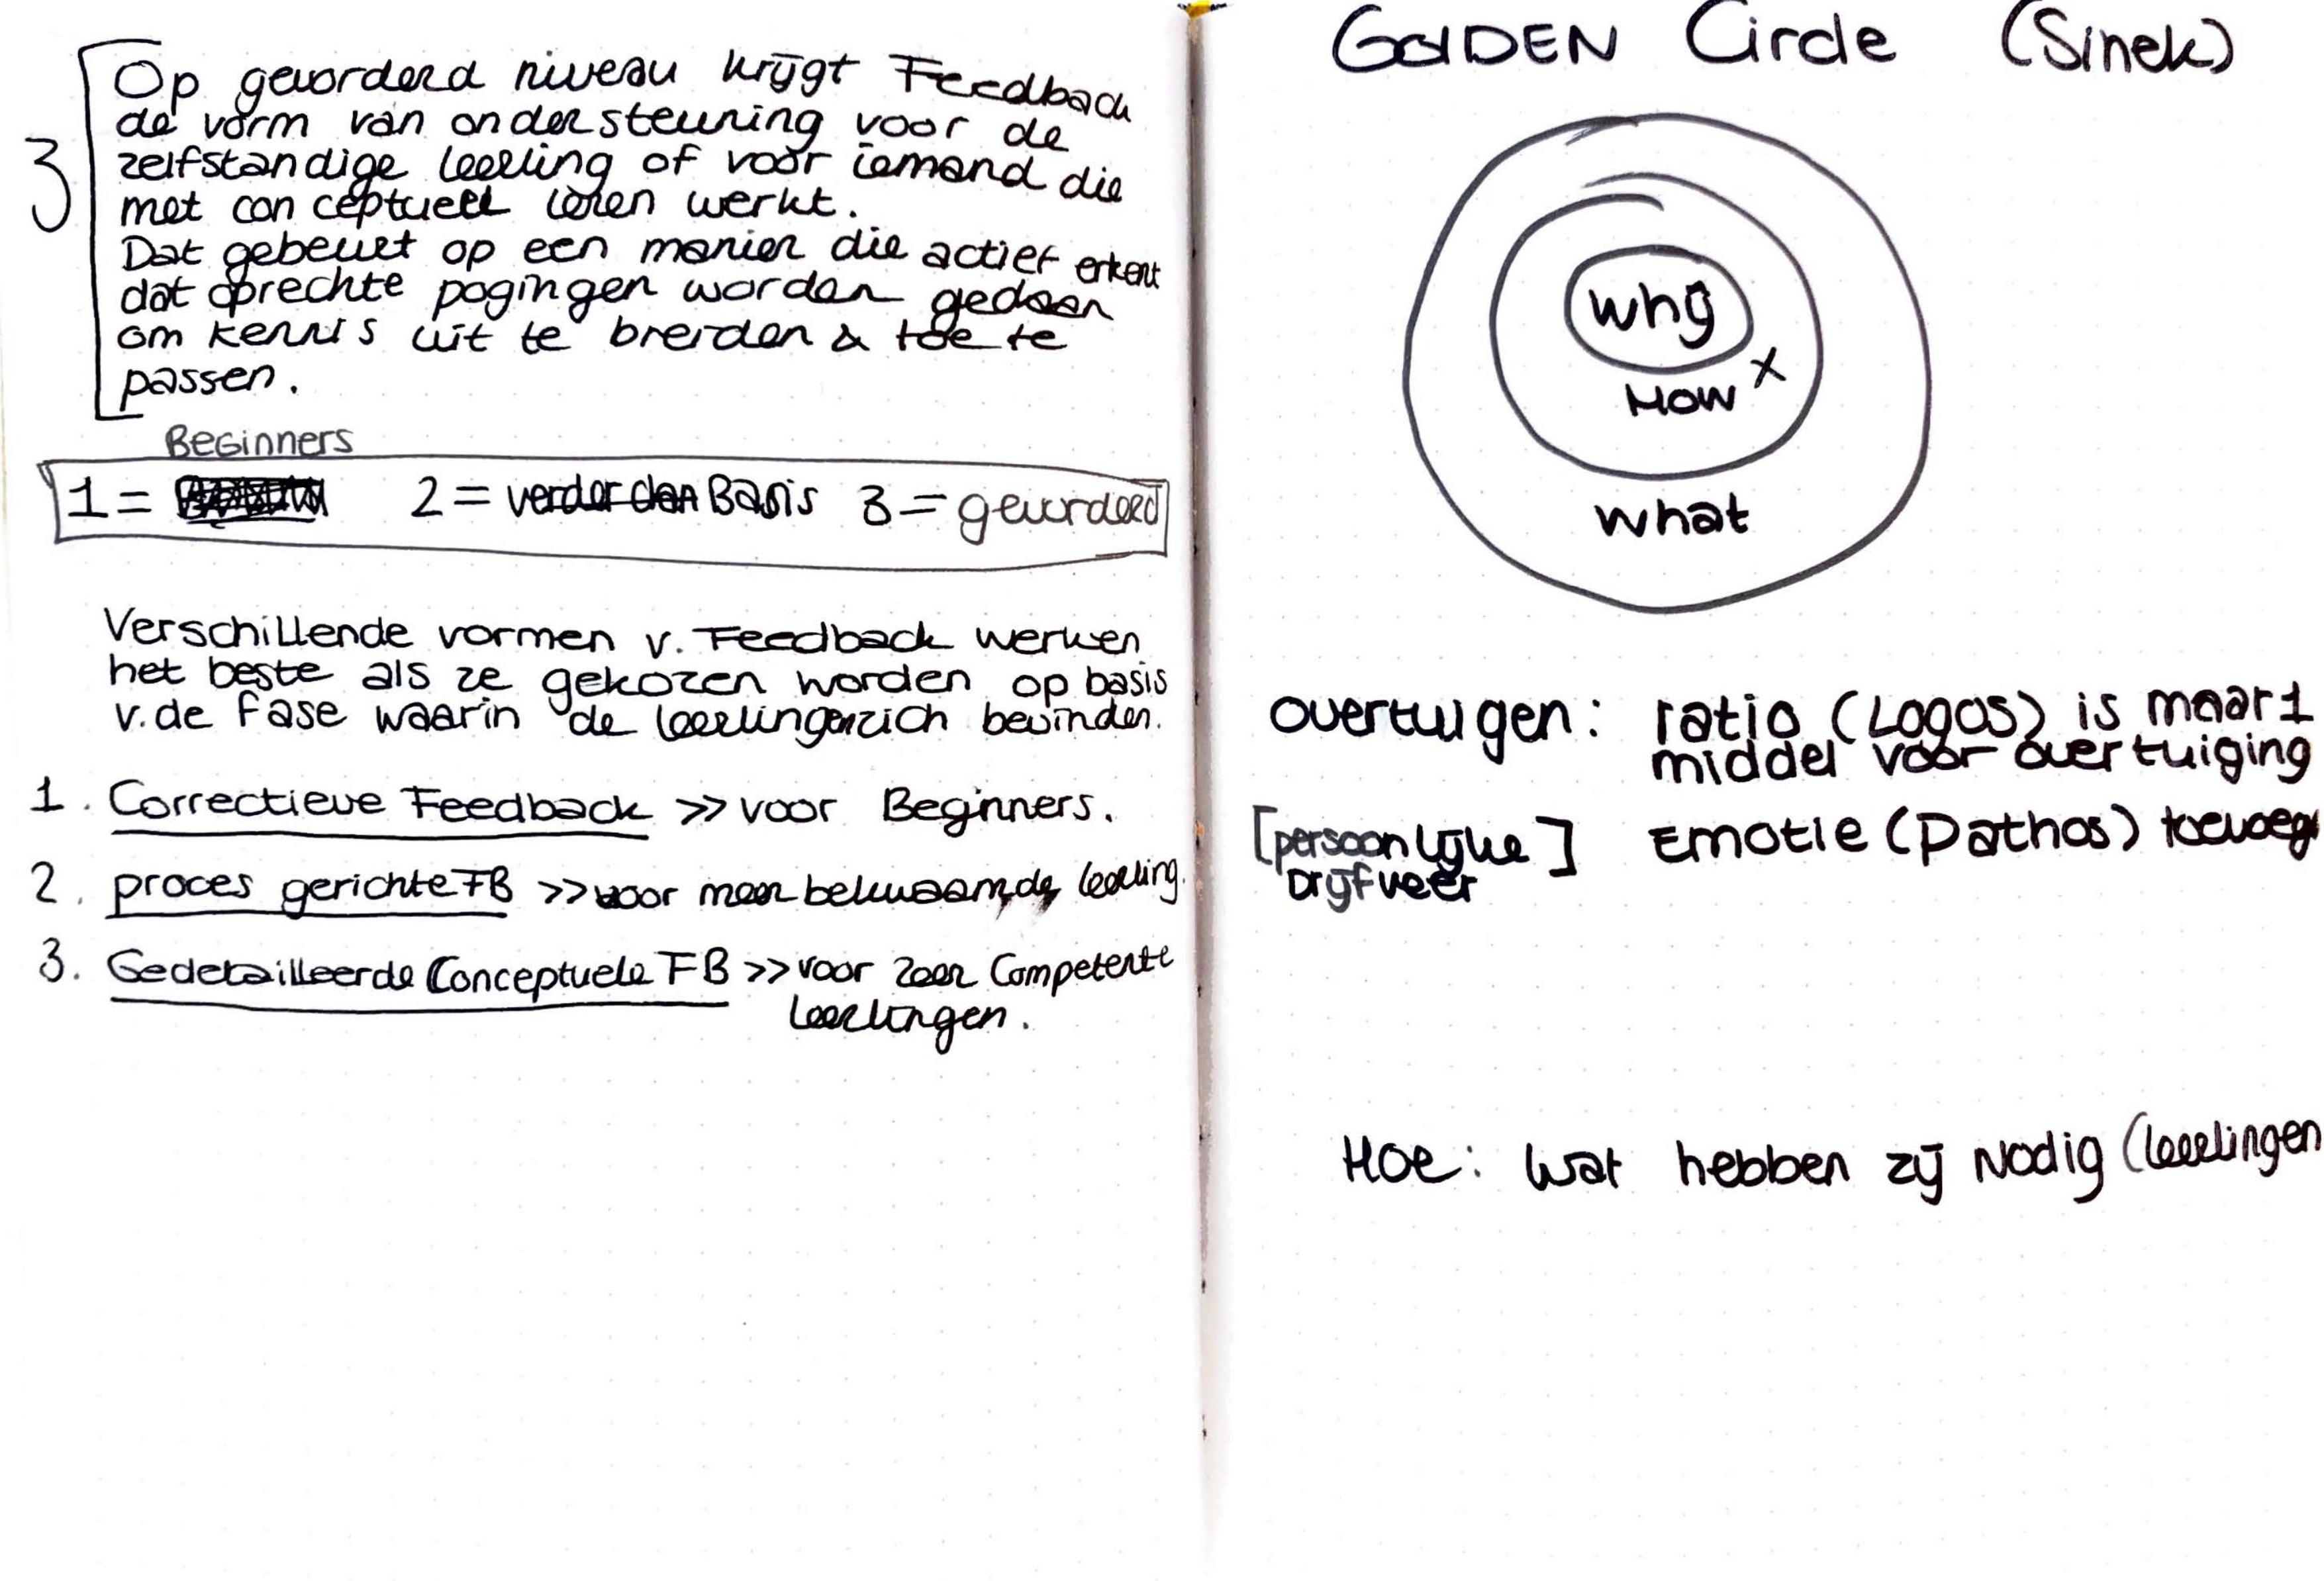 3
Op gevorderd niveau krijgt Feedback
de vorm van ondersteuning voor de
zelfstandige leerling of voor iemand die
met conceptueel leren werkt.
Dat gebeurt op een manier die actief erkent
dat oprechte pogingen worden gedaan
om kennis uit te breiden & toe te
passen.
Beginners
1 = 2 = verder dan Basis 3 = gevorderd
Verschillende vormen v. Feedback werken
het beste als ze gekozen worden op basis
v. de fase waarin de leerlingen zich bevinden.
1. Correctieve Feedback >> voor Beginners.
2. proces gerichte FB >> voor meer bekwaamde leerling.
3. Gedetailleerde Conceptuele FB >> voor zeer Competente
leerlingen.
GOLDEN Circle (Sinek)
why
HOW x
what
overtuigen: ratio (Logos) is maar 1
middel voor overtuiging
[persoonlijke] Emotie (Pathos) toevoeg
Drijfveer
Hoe: wat hebben zij Nodig (leerlingen